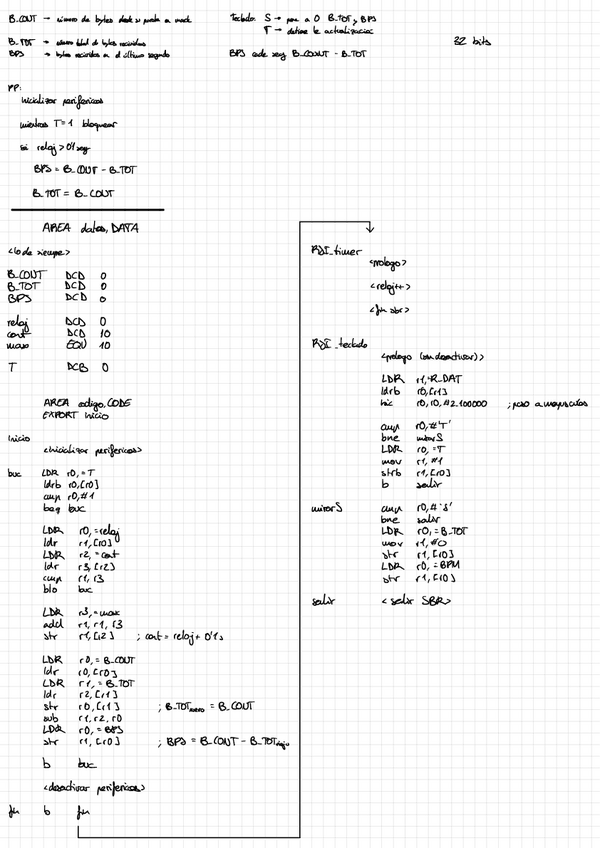 B_COUT → número de bytes desde q prendo a mack
B_TOT → número total de bytes recibidos
BPS → bytes recibidos en el último segundo
Teclado: S → pone a 0 B_TOT y BPS
T → detiene la actualización
BPS cada seg B_COUNT - B_TOT
32 bits
PP:
Inicializar periféricos
mientras T=1 bloquear
si reloj > 0'1 seg
BPS = B_COUT - B_TOT
B_TOT = B_COUT
AREA datos, DATA
<lo de siempre>
B_COUT DCD 0
B_TOT DCD 0
BPS DCD 0
reloj DCD 0
cont DCD 10
maxo EQU 10
T DCB 0
AREA codigo, CODE
EXPORT Inicio
Inicio
<inicializar perifericos>
buc LDR r0, =T
ldrb r0, [r0]
cmp r0, #1
beq buc
LDR r0, =reloj
ldr r1, [r0]
LDR r2, =cont
ldr r3, [r2]
cmp r1, r3
blo buc
LDR r3, =max
add r1, r1, r3
str r1, [r2] ; cont = reloj + 0'1s
LDR r0, = B_COUT
ldr r0, [r0]
LDR r1, = B_TOT
ldr r2, [r1]
str r0, [r1] ; B_TOT nuevo = B_COUT
sub r1, r2, r0
LDR r0, = BPS
str r1, [r0] ; BPS = B_COUT - B_TOT viejo
b buc
<desactivar perifericos>
fin b fin
RSI_timer
<prologo>
<reloj++>
<fin sbr>
RSI_teclado
<prologo (sin desactivar)>
LDR r1, =R_DAT
ldrb r0, [r1]
bic r0, r0, #2_100000 ; paso a mayusculas
cmp r0, #'T'
bne mirarS
LDR r0, =T
mov r1, #1
strb r1, [r0]
b salir
mirarS cmp r0, #'S'
bne salir
LDR r0, = B_TOT
mov r1, #0
str r1, [r0]
LDR r0, = BPM
str r1, [r0]
salir <salir SBR>